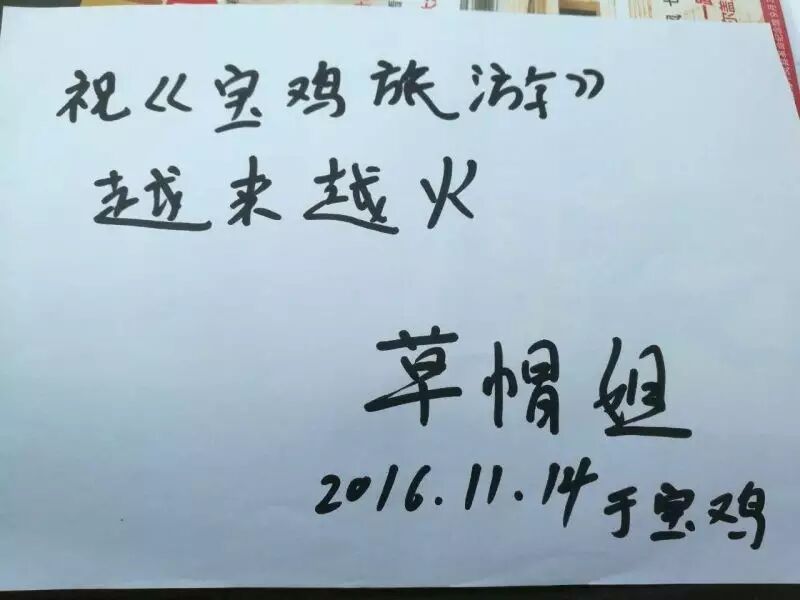 祝《宝鸡旅游》
越来越火
草帽姐
2016.11.14于宝鸡